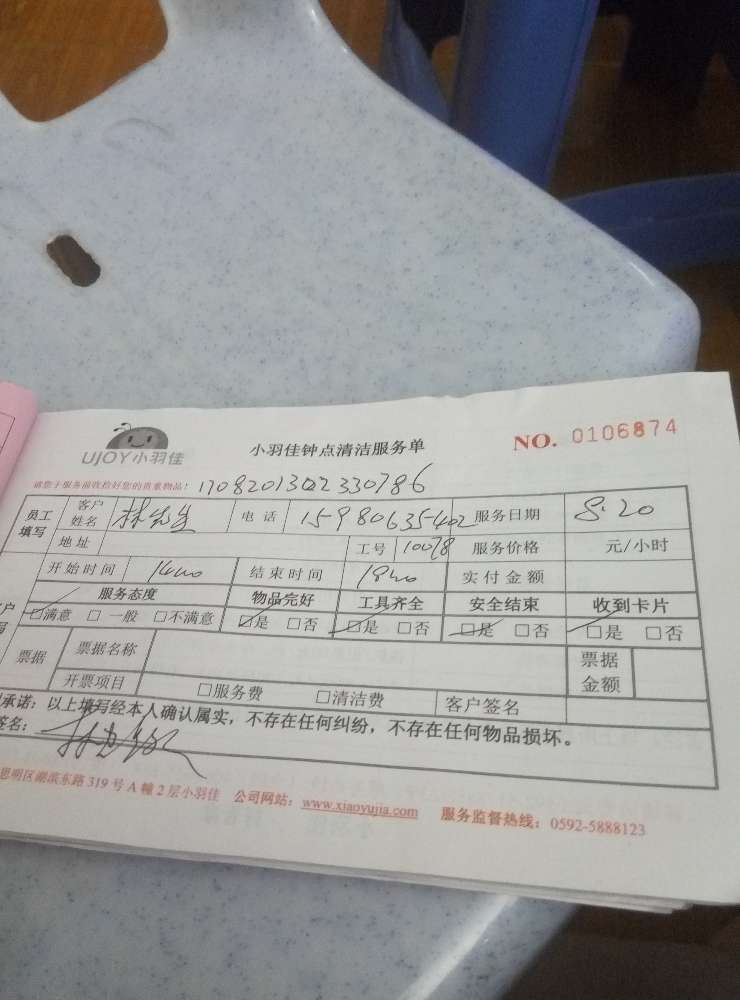 UJOY小羽佳 小羽佳钟点清洁服务单 NO. 0106874
请您于服务前收拾好您的贵重物品! 1708201302330786
员工填写 客户姓名 林先生 电话 15980635402 服务日期 8.20
地址 工号 10078 服务价格 元/小时
开始时间 1400 结束时间 1800 实付金额
服务态度 物品完好 工具齐全 安全结束 收到卡片
☑满意 □一般 □不满意 ☑是 □否 ☑是 □否 ☑是 □否 ☑是 □否
票据 票据名称 票据金额
开票项目 □服务费 □清洁费 客户签名
承诺:以上填写经本人确认属实,不存在任何纠纷,不存在任何物品损坏。
签名:
思明区湖滨东路319号A幢2层小羽佳 公司网站:www.xiaoyujia.com 服务监督热线:0592-5888123